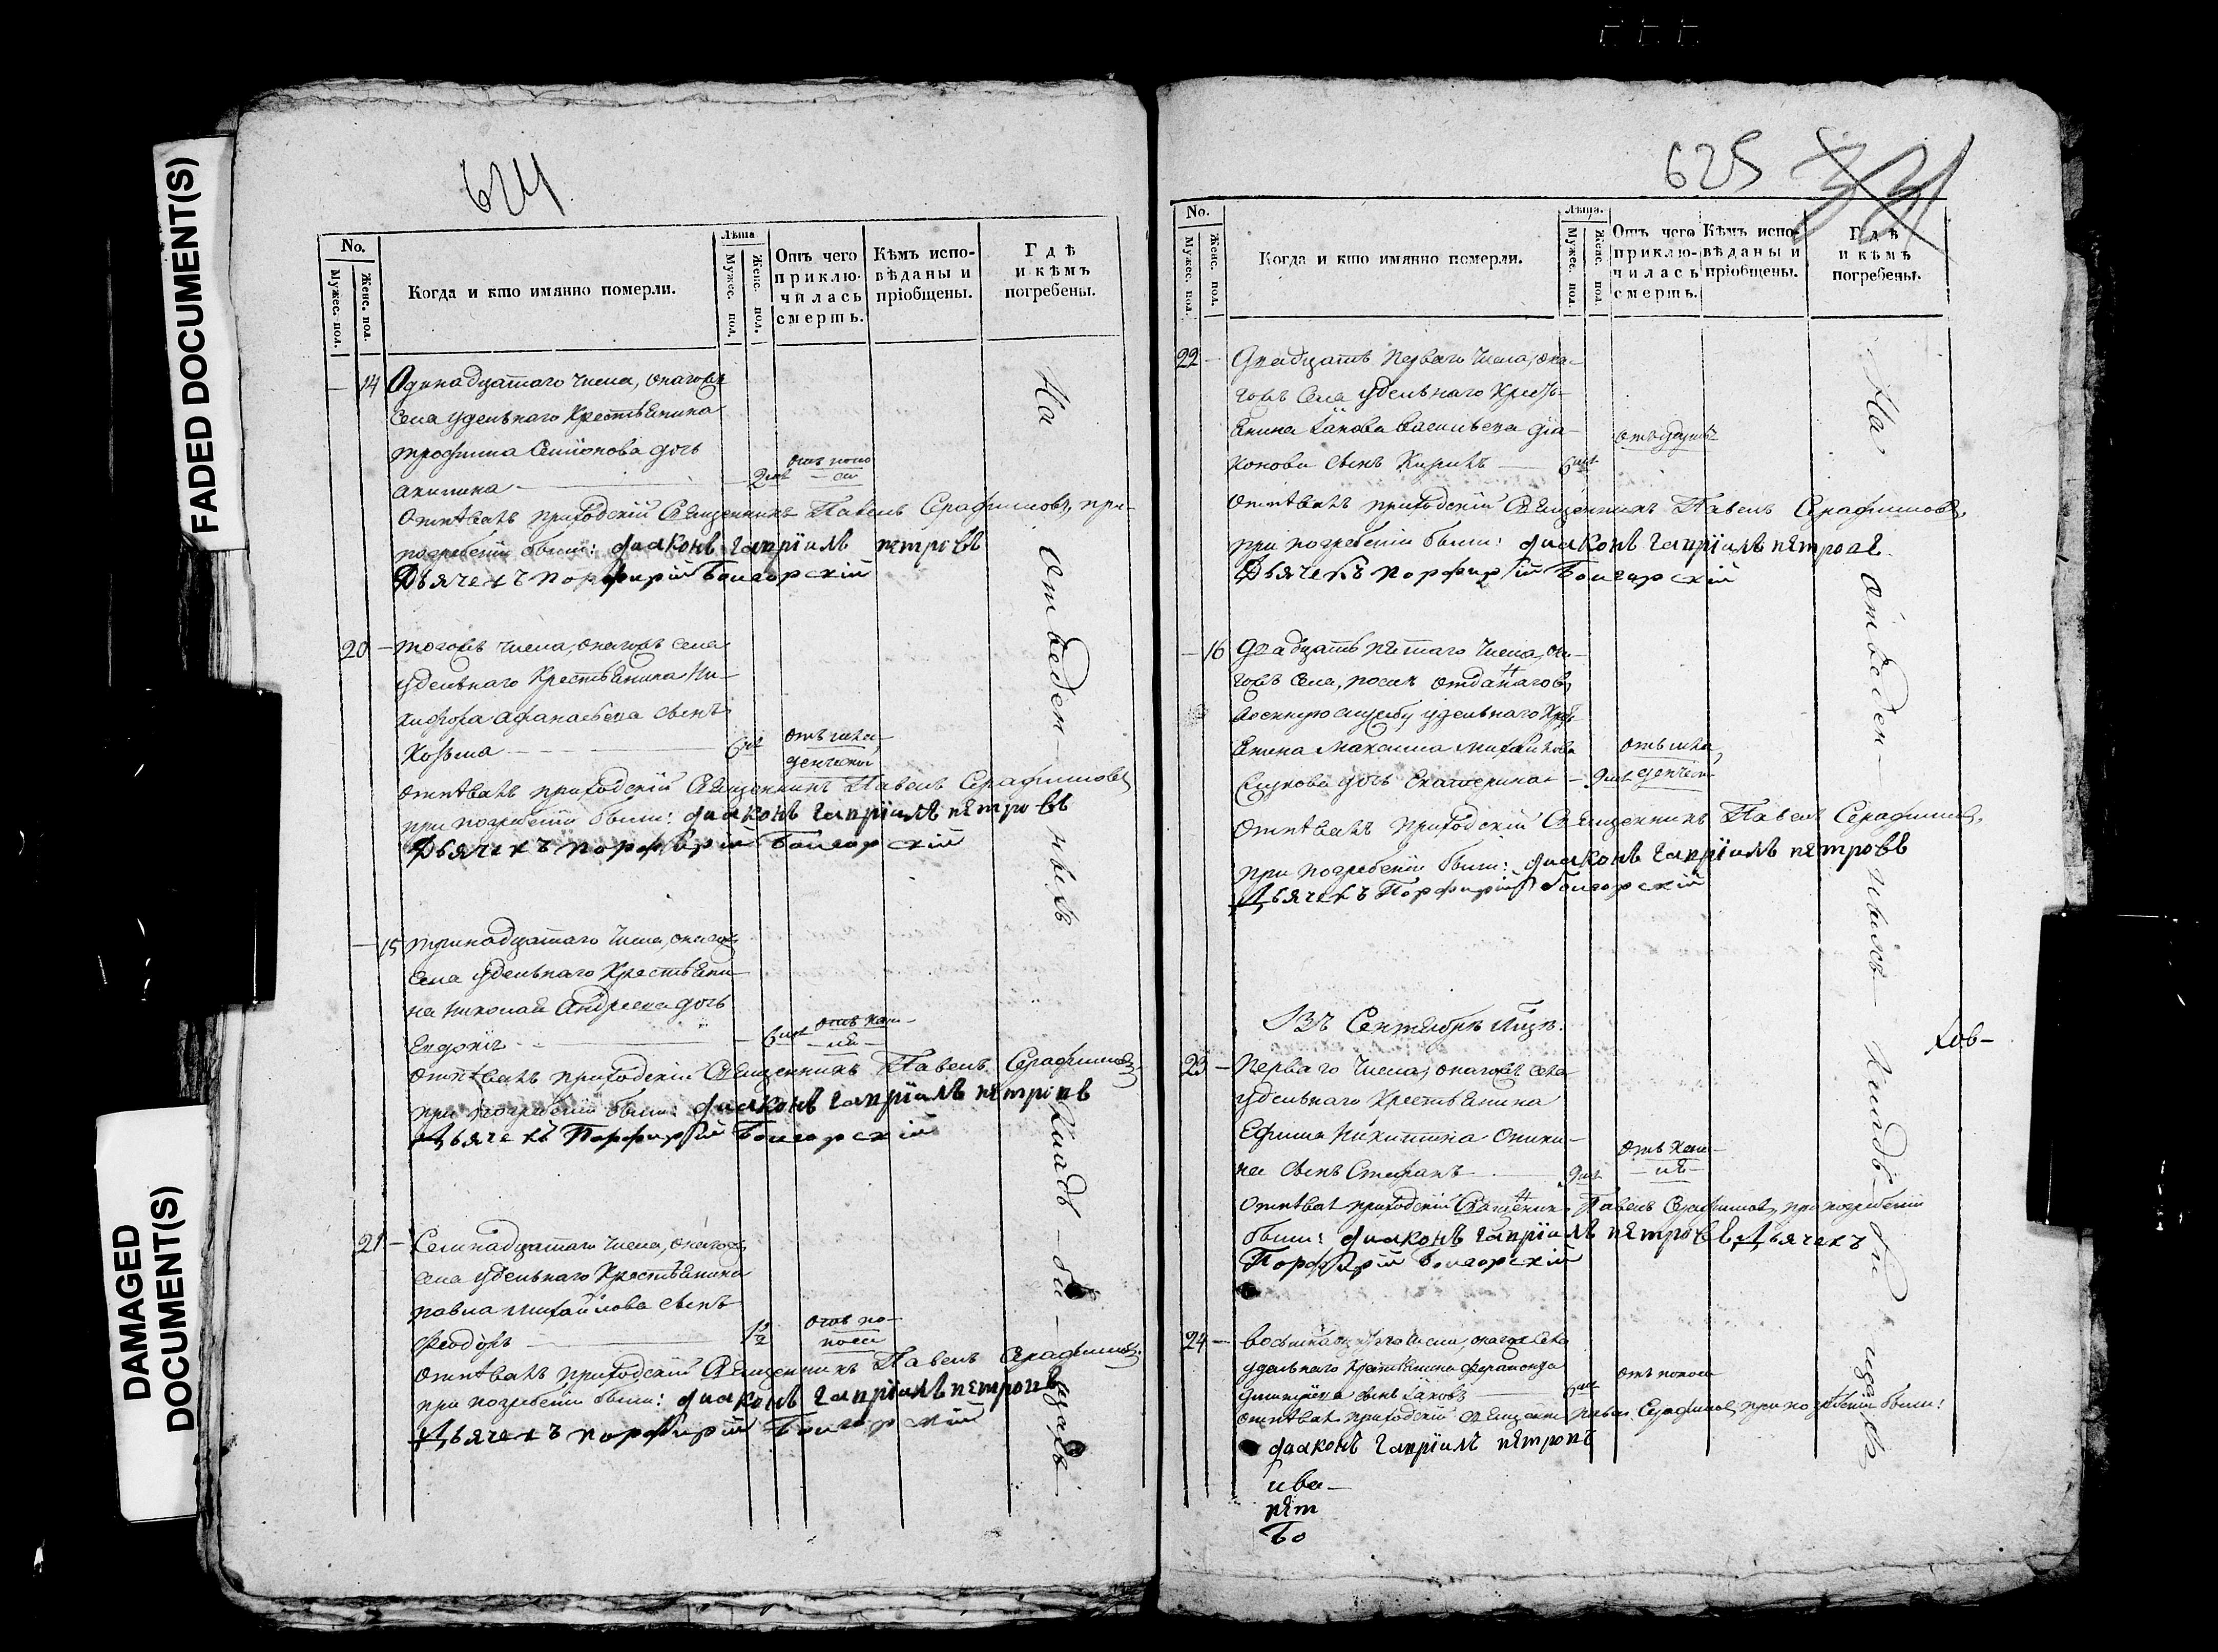 FADED DOCUMENT(S)
DAMAGED
DOCUMENT(S)
624
No.
Мужес. пол.
Женс. пол.
Когда и кто имянно померли.
Лѣта
Мужес. пол.
Женс. пол.
Отъ чего
приклю-
чилась
смерть.
Кѣмъ испо-
вѣданы и
прiобщены.
Гдѣ
и кѣмъ
погребены.
14 Одинадцатаго числа, онагожъ
села удельнаго Крестьянина
трофима Семионова дочь
акилина
отъ поно
са
отпѣвалъ приходскiй Священникъ Павелъ Серафимовъ, при
погребенiи были: дiаконъ гаврiилъ петровъ
Дьячекъ порфирiй Болгарскiй
20 — тогожъ числа, онагожъ села
удельнаго Крестьянина Ни-
кифора афанасьева сынъ
Козьма
отпѣвалъ приходскiй Священникъ Павелъ Серафимовъ
при погребенiи были: дiаконъ гаврiилъ петровъ
Дьячекъ порфирiй Болгарскiй
— 15 тринадцатаго числа, онагожъ
села удельнаго Крестьяни-
на николая Андреева дочь
отъ каш-
ля
отпѣвалъ приходскiй Священникъ Павелъ Серафимовъ
при погребенiи были: дiаконъ гаврiилъ петровъ
Дьячекъ Порфирiй Болгарскiй
21 — Семнадцатаго числа, онагожъ
села удельнаго Крестьянина
павла михайлова сынъ
Феодоръ
1½
отъ по-
носа
отпѣвалъ приходскiй Священникъ Павелъ Серафимовъ
при погребенiи были: дiаконъ гаврiилъ петровъ
Дьячекъ порфирiй Болгарскiй
На отведен — номъ кладб — би — щахъ
625
No.
Мужес. пол.
Женс. пол.
Когда и кто имянно померли.
Лѣта.
Мужес. пол.
Женс. пол.
Отъ чего
приклю-
чилась
смерть.
Кѣмъ испо-
вѣданы и
прiобщены.
Гдѣ
и кѣмъ
погребены.
22 — Двадцать перваго числа, она-
гожъ села удельнаго Кресть-
янина Iакова васильева дiа-
конова сынъ
отпѣвалъ приходскiй Священникъ Павелъ Серафимовъ,
при погребенiи были: дiаконъ гаврiилъ петровъ
Дьячекъ порфирiй Болгарскiй
— 16 Двадцать пятаго числа, она-
гожъ села, посли отданнаго въ
военную службу удельнаго Крест
янина максима михайлова
дочь Екатерина
отпѣвалъ приходскiй Священникъ Павелъ Серафимовъ,
при погребенiи были: дiаконъ гаврiилъ петровъ
Дьячекъ Порфирiй Болгарскiй
Въ Сентябрѣ мцѣ.
23 — Перваго числа, онагожъ села
удельнаго Крестьянина
Ефима Никитина аники-
на сынъ Стефанъ
отъ каш-
ля
отпѣвалъ приходскiй Священникъ Павелъ Серафимовъ, при погребенiи
были: дiаконъ гаврiилъ петровъ Дьячекъ
Порфирiй Болгарскiй
24 — Восемнадцатаго числа, онагожъ села
удельнаго Крестьянина ферапонта
димитрiева сынъ Iаковъ
отъ поноса
отпѣвалъ приходскiй священникъ павелъ Серафимовъ, при погребенiи были:
дiаконъ гаврiилъ петровъ
ива-
пѣт
Бо
ков-
На отведен — номъ кладб би — щахъ